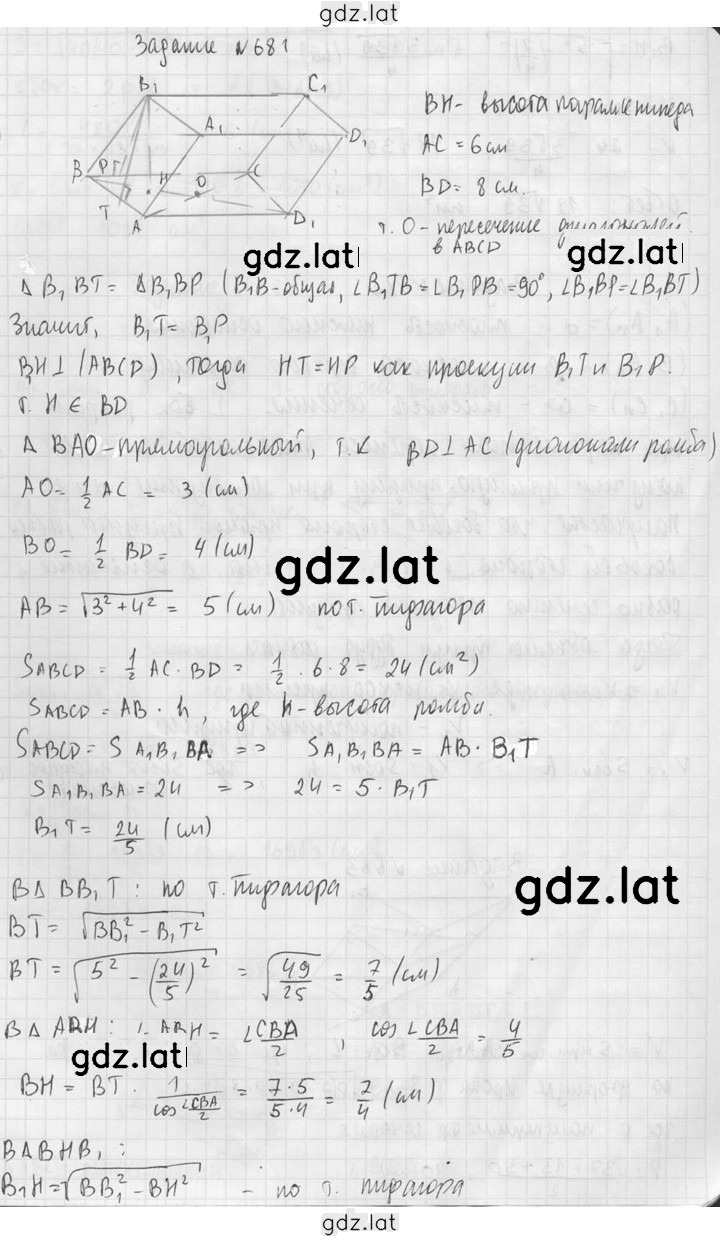 gdz.lat
Задание №681
B₁ C₁
A₁ D₁
B P Г H O C
T A D₁
BH - высота параллепипеда
AC = 6 см
BD = 8 см.
т. O - пересечение диагоналей
в ABCD
gdz.lat
gdz.lat
Δ B₁BT = ΔB₁BP (B₁B-общая, ∠B₁TB = ∠B₁PB = 90°, ∠B₁BP = ∠B₁BT)
Значит, B₁T = B₁P
B₁H ⊥ (ABCD), тогда HT = HP как проекции B₁T и B₁P.
т. H ∈ BD
Δ BAO - прямоугольный, т.к BD ⊥ AC (диагонали ромба)
AO = 1/2 AC = 3 (см)
BO = 1/2 BD = 4 (см)
gdz.lat
AB = √(3² + 4²) = 5 (см) по т. Пифагора
SABCD = 1/2 AC · BD = 1/2 · 6 · 8 = 24 (см²)
SABCD = AB · h, где h - высота ромба.
SABCD = S A₁B₁BA => SA₁B₁BA = AB · B₁T
SA₁B₁BA = 24 => 24 = 5 · B₁T
B₁T = 24/5 (см)
В Δ BB₁T: по т. Пифагора
gdz.lat
BT = √(BB₁² - B₁T²)
BT = √(5² - (24/5)²) = √(49/25) = 7/5 (см)
В Δ ABH: ∠ABH = ∠CBA/2, cos ∠CBA/2 = 4/5
gdz.lat
BH = BT · 1/(cos ∠CBA/2) = 7·5/5·4 = 7/4 (см)
В Δ BHB₁:
B₁H = √(BB₁² - BH²) - по т. пифагора
gdz.lat